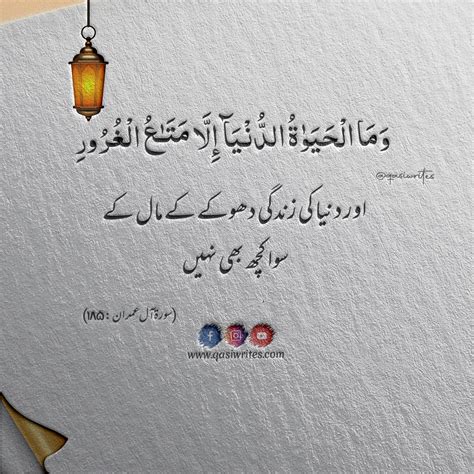 وَمَا الْحَيَوٰةُ الدُّنْيَآ إِلَّا مَتَـٰعُ الْغُرُورِ
@qasiwrites
اور دنیا کی زندگی دھوکے کے مال کے
سوا کچھ بھی نہیں
(سورۃ آل عمران : ۱۸۵)
www.qasiwrites.com